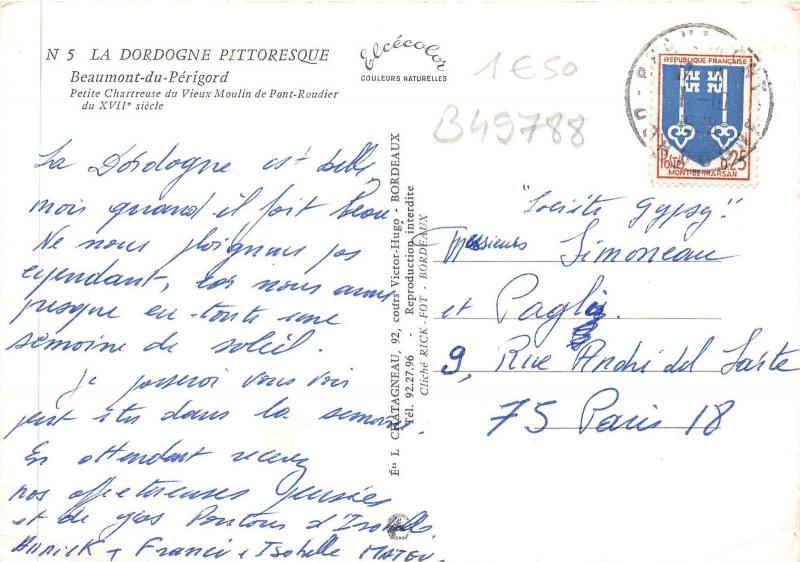 N 5 LA DORDOGNE PITTORESQUE
Beaumont-du-Périgord
Petite Chartreuse du Vieux Moulin de Pont-Roudier
du XVIIe siècle
Elcécolor
COULEURS NATURELLES
1€50
B49788
REPUBLIQUE FRANÇAISE
POSTES 0,25
MONT-DE-MARSAN
La Dordogne est belle,
mois quand il fait beau
Ne nous plaignons pas
cependant, car nous avons
presque eu toute une
semaine de soleil.
Je passerai vous voir
peut etre dans la semaine.
En attendant recevez
nos affectueuses pensées
et de gros d'Isabelle
Annick + Francis + Isabelle
Éts L. CHATAGNEAU, 92, cours Victor-Hugo - BORDEAUX
Tél. 92.27.96 - Reproduction interdite
Cliché RICK-FOT - BORDEAUX
"Société Gypsy"
Messieurs Simoneau
et Pagli
9, Rue André del Sarte
75 Paris 18